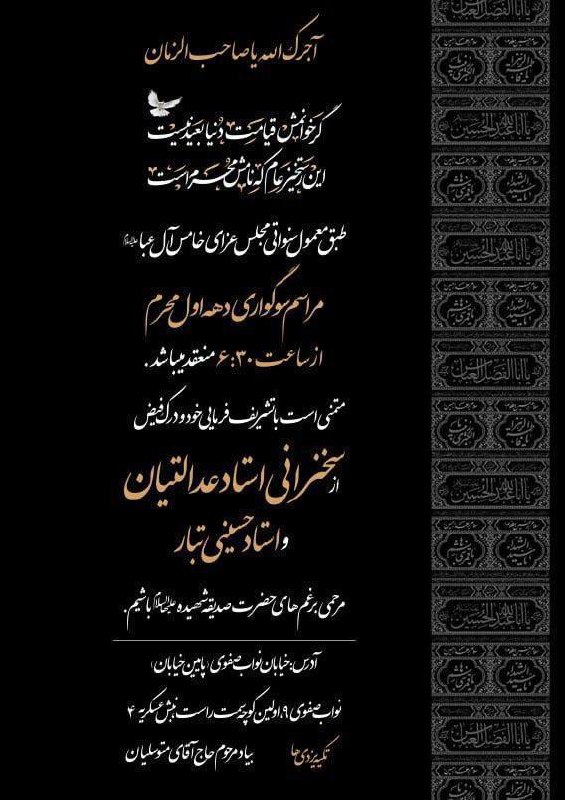 آجرک الله یا صاحب الزمان
گر خوانمش قیامت دنیا بعید نیست
این رستخیز عام که نامش محرم است
طبق معمول سنواتی مجلس عزای خامس آل عبا علیه‌السلام
مراسم سوگواری دهه اول محرم
از ساعت ۶:۳۰ منعقد میباشد.
متمنی است با تشریف فرمایی خود و درک فیض
از سخنرانی استاد عدالتیان
و استاد حسینی تبار
مرحمی بر غم های حضرت صدیقه شهیده علیهاالسلام باشیم.
آدرس: خیابان نواب صفوی (پایین خیابان)
نواب صفوی ۹، اولین کوچه سمت راست نبش عسکریه ۴
تکیه یزدی ها بیاد مرحوم حاج آقای متوسلیان
یا اباالفضل العباس
یا اباعبدالله الحسین
یا اباعبدالله الحسین
یا اباالفضل العباس
یا اباعبدالله الحسین
یا اباعبدالله الحسین
یا اباالفضل العباس